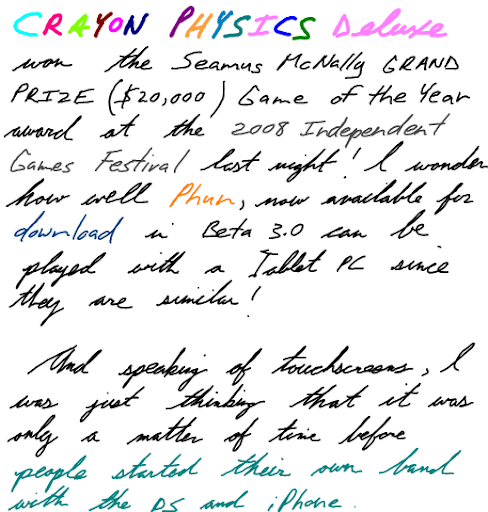 CRAYON PHYSICS Deluxe
won the Seamus McNally GRAND
PRIZE ($20,000) Game of the Year
award at the 2008 Independent
Games Festival last night! I wonder
how well Phun, now available for
download in Beta 3.0 can be
played with a Tablet PC since
they are similar!
And speaking of touchscreens, I
was just thinking that it was
only a matter of time before
people started their own band
with the DS and iPhone.